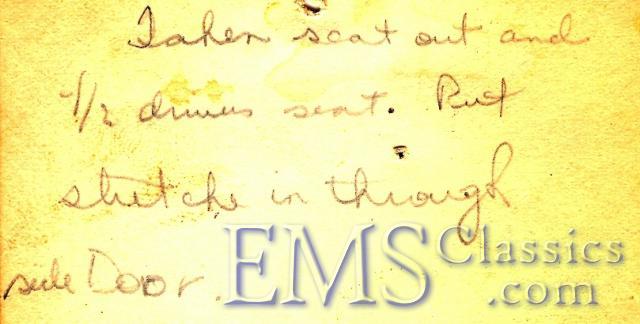 Taken seat out and
1/2 drivers seat. Put
stretche in through
side Door.
EMSClassics
.com